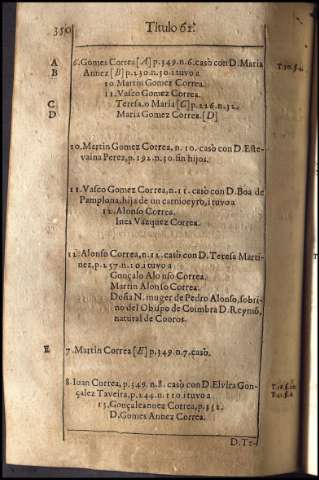 350 Titulo 62.
A 6. Gomes Correa [A] p.349.n.6. casò con D. Maria
B Annez [B] p.230.n.30. i tuvo a
10. Martin Gomez Correa.
11. Vasco Gomez Correa.
C Teresa, o Maria [C] p.226.n.32.
D Maria Gomez Correa. [D]
10. Martin Gomez Correa, n. 10. casò con D. Este-
vaina Perez, p. 192. n. 30. sin hijos.
11. Vasco Gomez Correa, n. 11. casò con D. Boa de
Pamplona, hija de un carniceyro, i tuvo a
12. Alonso Correa.
Ines Vazquez Correa.
12. Alonso Correa, n. 12. casò con D. Teresa Marti-
nez, p. 257. n. 10. i tuvo a
Gonçalo Alonso Correa.
Martin Alonso Correa.
Doña N. muger de Pedro Alonso, sobri-
no del Obispo de Coimbra D. Reymō,
natural de Cooros.
E 7. Martin Correa [E] p.349.n.7. casò.
8. Iuan Correa, p.349. n.8. casò con D. Elvira Gon-
çalez Taveira, p.244. n. 110. i tuvo a
13. Gonçaleannez Correa, p.351.
D. Gomes Annez Correa.
D. Te-